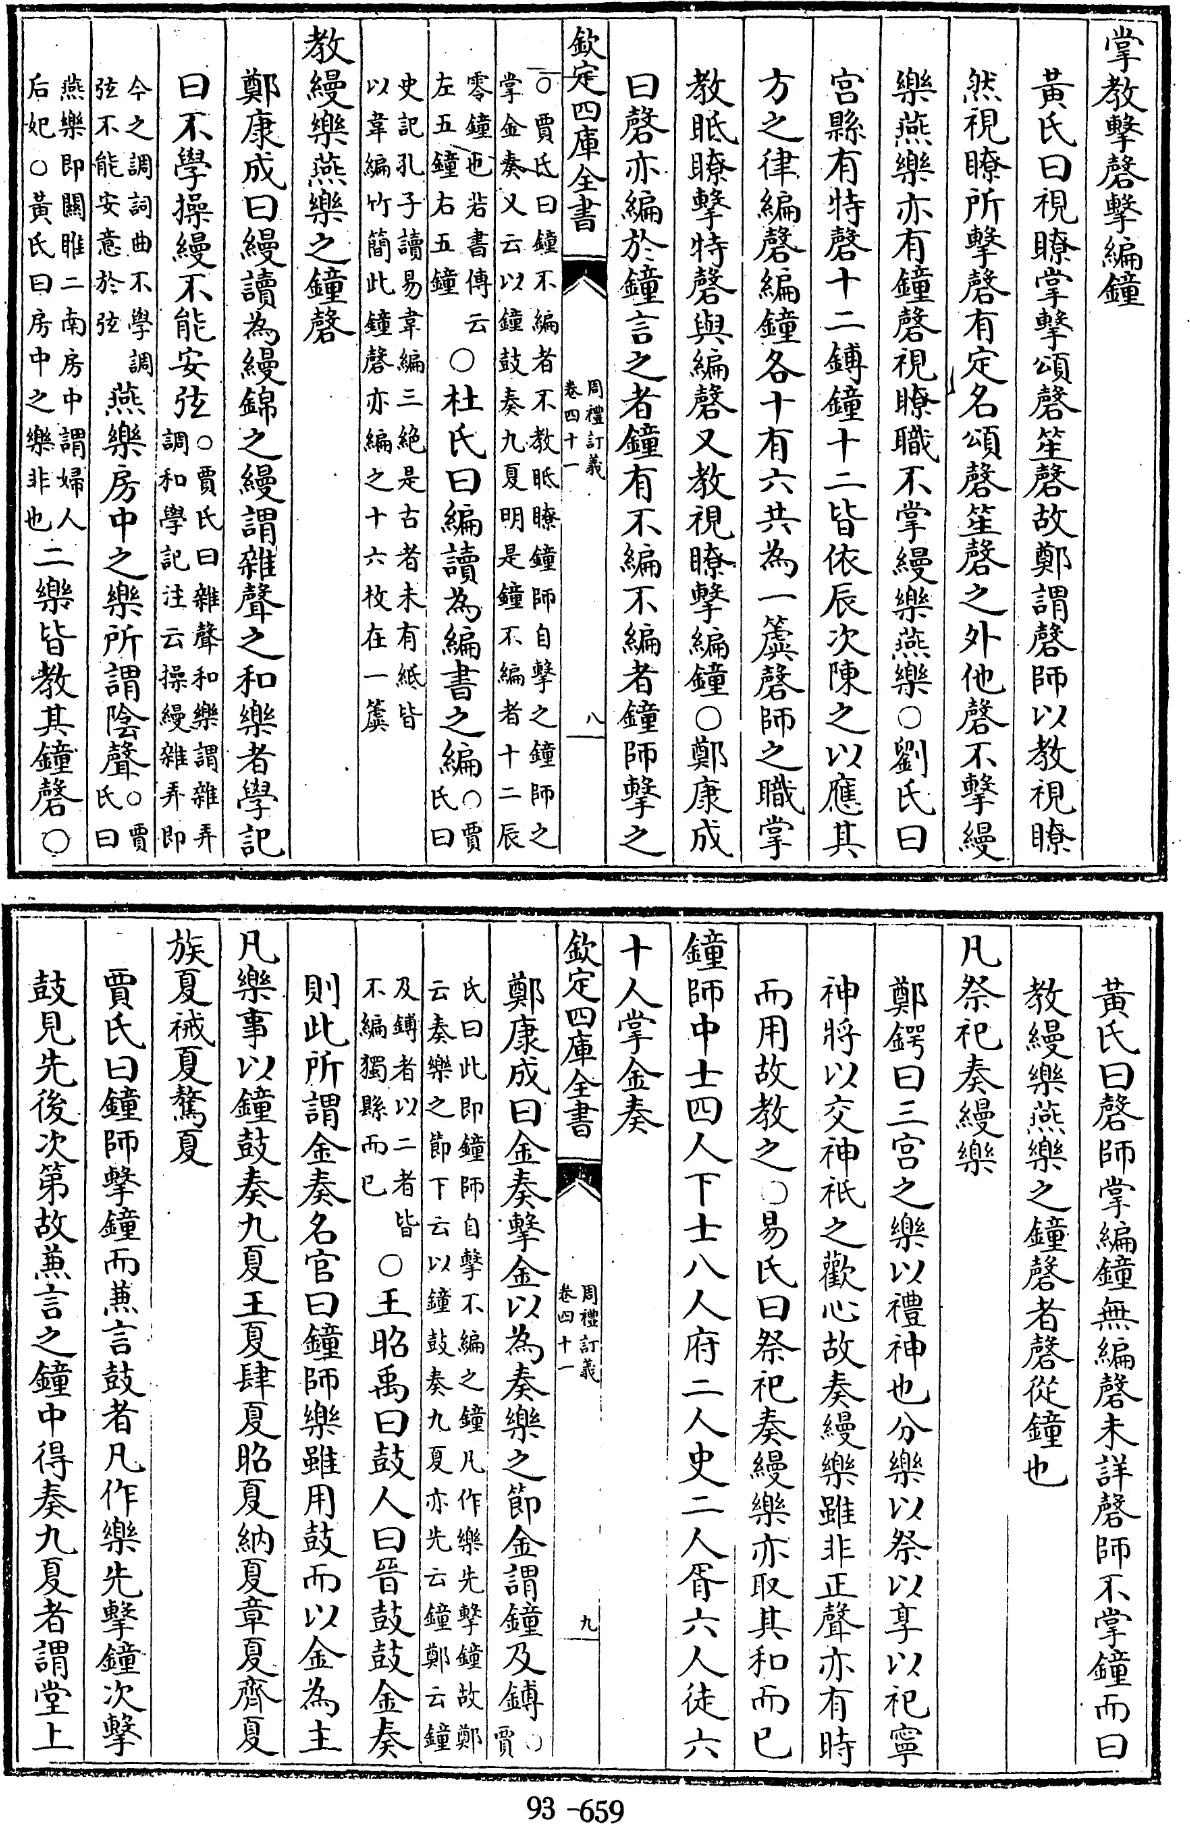 掌教擊磬擊編鐘
黃氏曰視瞭掌擊頌磬笙磬故鄭謂磬師以教視瞭
然視瞭所擊磬有定名頌磬笙磬之外他磬不擊縵
樂燕樂亦有鐘磬視瞭職不掌縵樂燕樂○劉氏曰
宫縣有特磬十二鎛鐘十二皆依辰次陳之以應其
方之律編磬編鐘各十有六共為一簴磬師之職掌
教眡瞭擊特磬與編磬又教視瞭擊編鐘○鄭康成
曰磬亦編於鐘言之者鐘有不編不編者鐘師擊之
欽定四庫全書 周禮訂義 卷四十一 八
○賈氏曰鐘不編者不教眡瞭鐘師自擊之鐘師之
掌金奏又云以鐘鼓奏九夏明是鐘不編者十二辰
零鐘也若書傳云
左五鐘右五鐘
○杜氏曰編讀為編書之編○賈
氏曰
史記孔子讀易韋編三絶是古者未有紙皆
以韋編竹簡此鐘磬亦編之十六枚在一簴
教縵樂燕樂之鐘磬
鄭康成曰縵讀為縵錦之縵謂雜聲之和樂者學記
曰不學操縵不能安弦○賈氏曰雜聲和樂謂雜弄
調和學記注云操縵雜弄即
今之調詞曲不學調
弦不能安意於弦
燕樂房中之樂所謂陰聲○賈
氏曰
燕樂即關雎二南房中謂婦人
后妃○黃氏曰房中之樂非也
二樂皆教其鐘磬○
黃氏曰磬師掌編鐘無編磬未詳磬師不掌鐘而曰
教縵樂燕樂之鐘磬者磬從鐘也
凡祭祀奏縵樂
鄭鍔曰三宫之樂以禮神也分樂以祭以享以祀寧
神將以交神祇之歡心故奏縵樂雖非正聲亦有時
而用故教之○易氏曰祭祀奏縵樂亦取其和而已
鐘師中士四人下士八人府二人史二人胥六人徒六
十人掌金奏
欽定四庫全書 周禮訂義 卷四十一 九
鄭康成曰金奏擊金以為奏樂之節金謂鐘及鎛○
賈
氏曰此即鐘師自擊不編之鐘凡作樂先擊鐘故鄭
云奏樂之節下云以鐘鼓奏九夏亦先云鐘鄭云鐘
及鎛者以二者皆
不編獨縣而已
○王昭禹曰鼓人曰晉鼓鼓金奏
則此所謂金奏名官曰鐘師樂雖用鼓而以金為主
凡樂事以鐘鼓奏九夏王夏肆夏昭夏納夏章夏齊夏
族夏祴夏驁夏
賈氏曰鐘師擊鐘而兼言鼓者凡作樂先擊鐘次擊
鼓見先後次第故兼言之鐘中得奏九夏者謂堂上
93-659